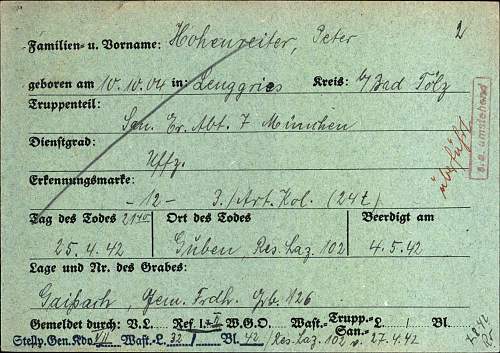 2
Familien- u. Vorname: Hohenreiter, Peter
geboren am 10.10.04 in: Lenggries Kreis: b/Bad Tölz
Truppenteil:
San. Er. Abt. 7 München
Dienstgrad:
Uffz.
Erkennungsmarke:
-12- 3./Art. Kol. (24t)
Tag des Todes 21⁴⁰ Ort des Todes Beerdigt am
25.4.42 Guben, Res. Laz. 102 4.5.42
Lage und Nr. des Grabes:
Gaißach, Gem. Frdh. Grb. 126
Gemeldet durch: V.L. Ref. I+II W.G.O. Wast.-Trupp.-San.- L.: / Bl.
Stellv. Gen. Kdo VII Wast.-L. 32 / Bl. 42 / Res. Laz. 102 v. 27.4.42
s. a. umstehend